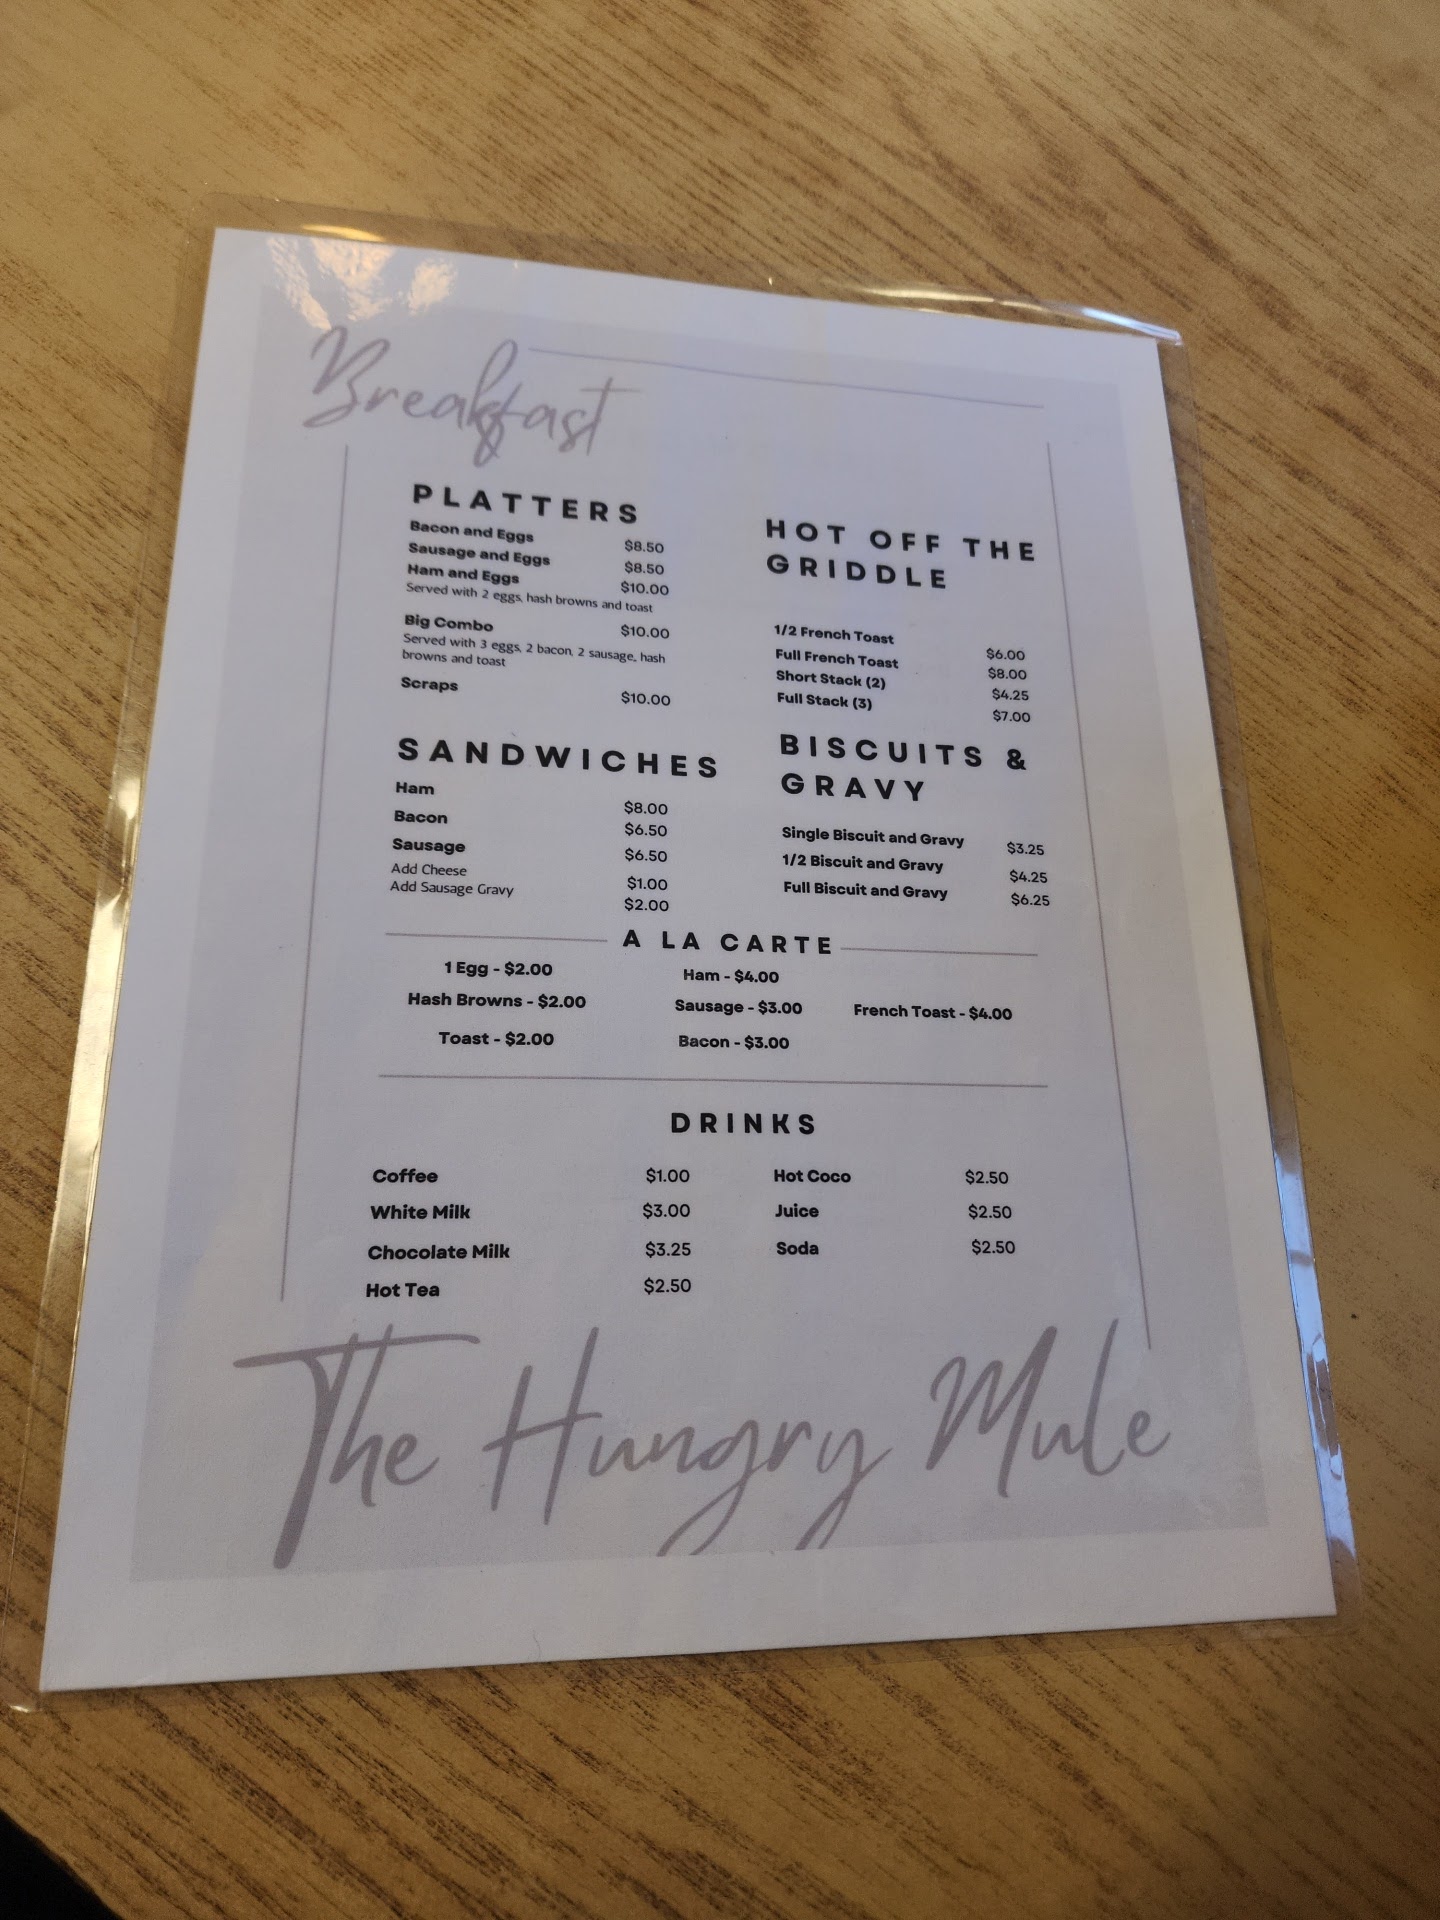 Breakfast
PLATTERS
Bacon and Eggs $8.50
Sausage and Eggs $8.50
Ham and Eggs $10.00
Served with 2 eggs, hash browns and toast
Big Combo $10.00
Served with 3 eggs, 2 bacon, 2 sausage, hash
browns and toast
Scraps $10.00
HOT OFF THE
GRIDDLE
1/2 French Toast $6.00
Full French Toast $8.00
Short Stack (2) $4.25
Full Stack (3) $7.00
SANDWICHES
Ham $8.00
Bacon $6.50
Sausage $6.50
Add Cheese $1.00
Add Sausage Gravy $2.00
BISCUITS &
GRAVY
Single Biscuit and Gravy $3.25
1/2 Biscuit and Gravy $4.25
Full Biscuit and Gravy $6.25
A LA CARTE
1 Egg - $2.00
Hash Browns - $2.00
Toast - $2.00
Ham - $4.00
Sausage - $3.00
Bacon - $3.00
French Toast - $4.00
DRINKS
Coffee $1.00
White Milk $3.00
Chocolate Milk $3.25
Hot Tea $2.50
Hot Coco $2.50
Juice $2.50
Soda $2.50
The Hungry Mule